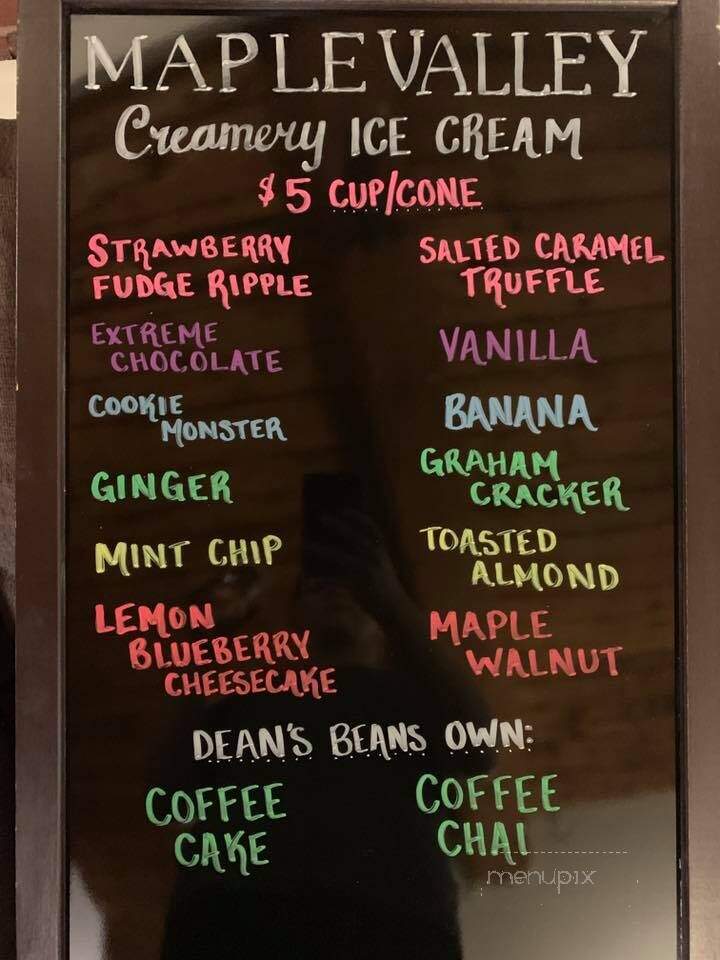 MAPLE VALLEY
Creamery ICE CREAM
$5 CUP/CONE
STRAWBERRY
FUDGE RIPPLE
SALTED CARAMEL
TRUFFLE
EXTREME
CHOCOLATE
VANILLA
COOKIE
MONSTER
BANANA
GINGER
GRAHAM
CRACKER
MINT CHIP
TOASTED
ALMOND
LEMON
BLUEBERRY
CHEESECAKE
MAPLE
WALNUT
DEAN'S BEANS OWN:
COFFEE
CAKE
COFFEE
CHAI
menupix